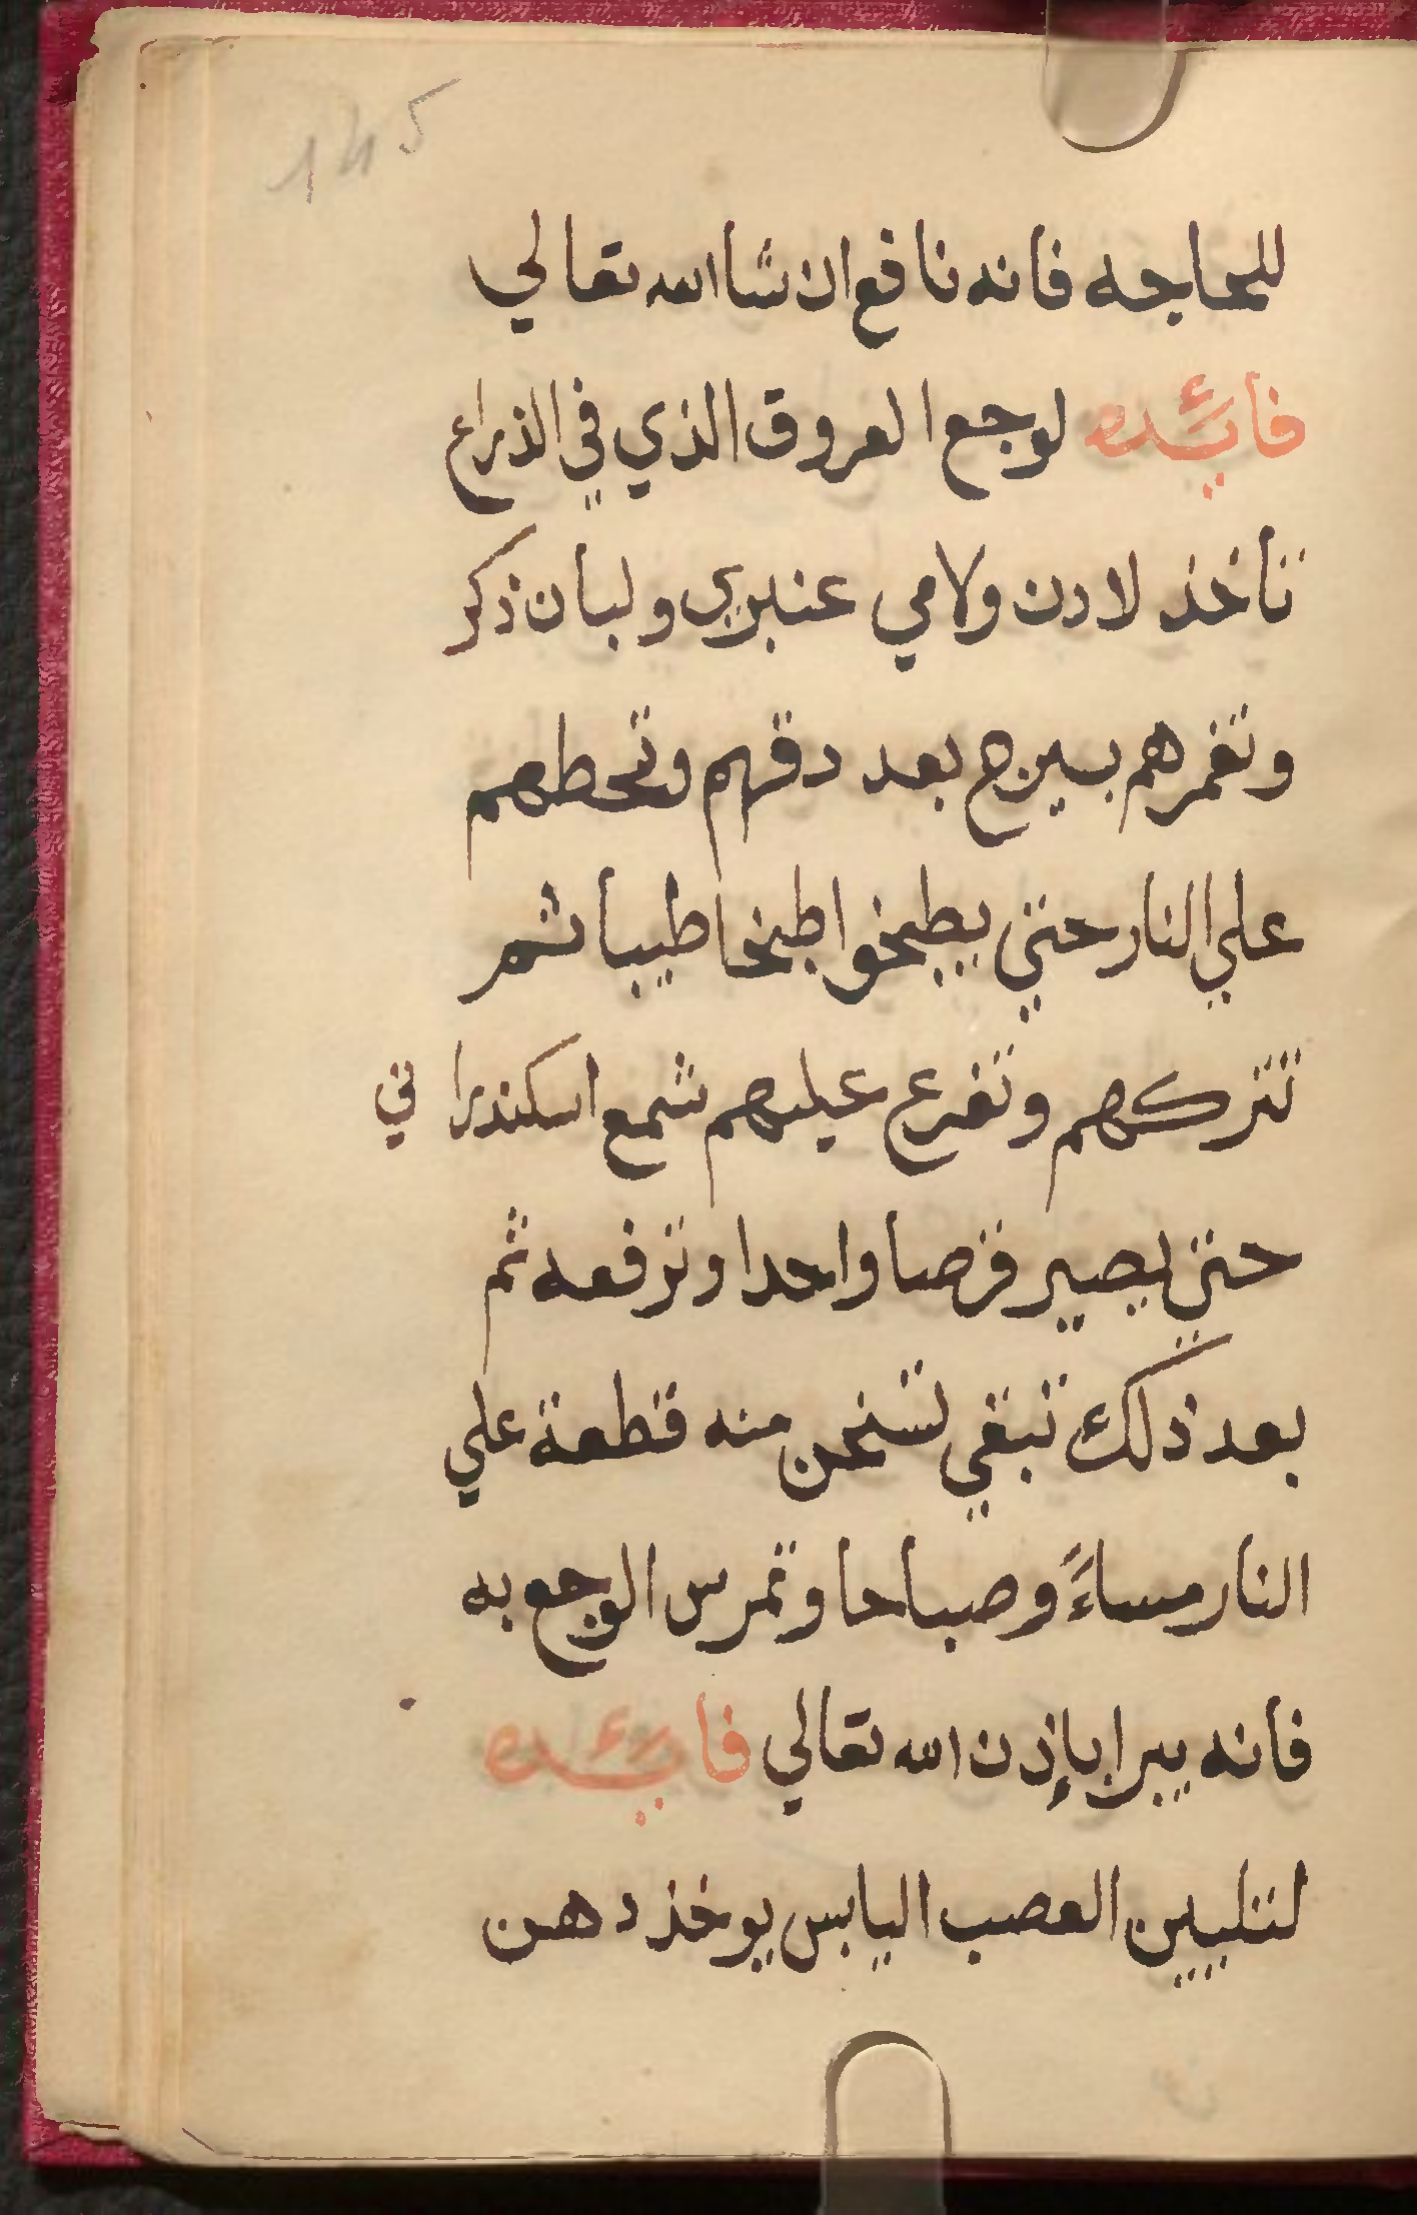 145
للحاجه فانه نافع ان شا الله تعالي
فائده لوجع العروق الذي في الذراع
تأخذ لادن ولامي عنبري ولبان ذكر
وتغمرهم بسيرج بعد دقهم وتحطهم
علي النار حتي يطبخوا طبخا طيبا ثم
تتركهم وتفرع عيلهم شمع اسكندراني
حتي يصير قرصا واحدا وترفعه ثم
بعد ذلك تبقي تسخن منه قطعة علي
النار مساءً وصباحا وتمرس الوجع به
فانه يبرا بإذن الله تعالي فائده
لتليين العصب اليابس يوخذ دهن